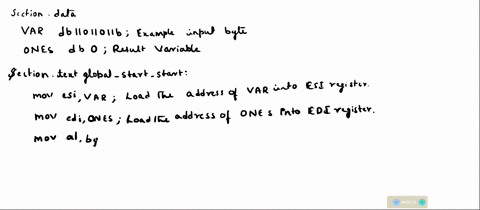 Section .data
VAR db 11011011b ; Example input byte
ONES db 0 ; Result Variable
Section .text global_start_start:
mov esi, VAR ; Load the address of VAR into ESI register.
mov edi, ONES ; Load the address of ONES into EDI register.
mov al, by